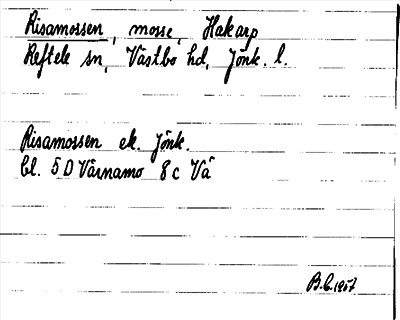 Risamossen, mosse, Hakarp
Reftele sn, Västbo hd, Jönk. l.
Risamossen ek. Jönk.
bl. 5 D Värnamo 8 c Vå
B.L. 1957